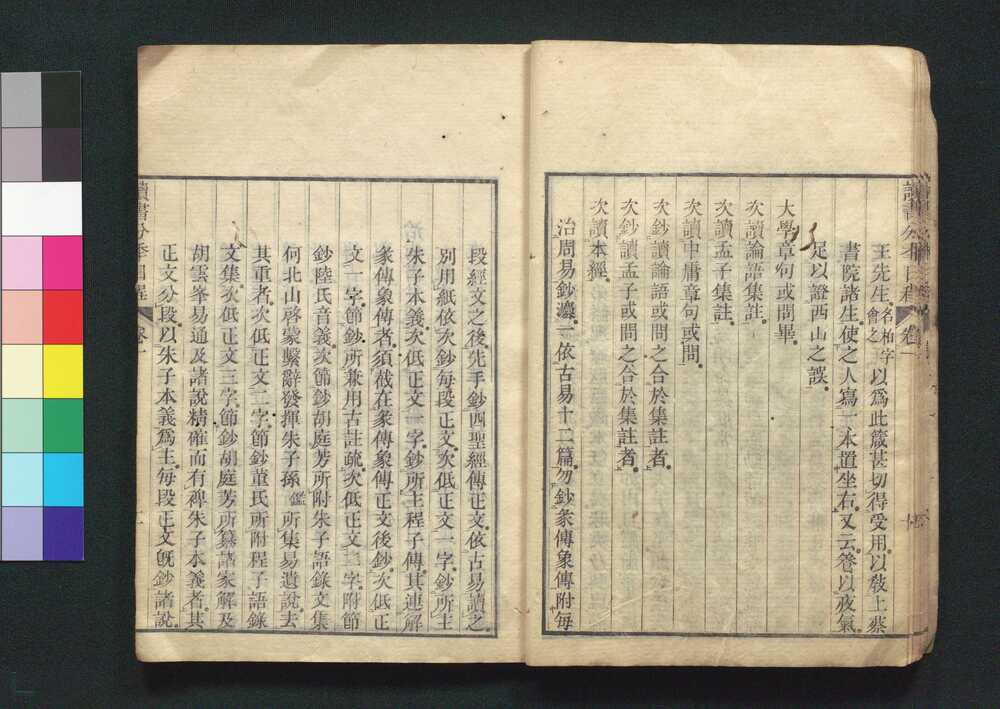 讀書分年日程 卷一
王先生名柏字會之以爲此箴甚切得受用以敎上蔡
書院諸生使之人寫一本置坐右又云養以夜氣
足以證西山之誤
大學章句或問畢
次讀論語集註
次讀孟子集註
次讀中庸章句或問
次鈔讀論語或問之合於集註者
次鈔讀孟子或問之合於集註者
次讀本經
治周易鈔灋一依古易十二篇勿鈔彖傳象傳附每
段經文之後先手鈔四聖經傳正文依古易讀之
別用紙依次鈔每段正文次低正文一字鈔所主
朱子本義次低正文一字鈔所主程子傳其連解
彖傳象傳者須截在彖傳象傳正文後鈔次低正
文一字節鈔所兼用古註疏次低正文二字附節
鈔陸氏音義次節鈔胡庭芳所附朱子語錄文集
何北山啟蒙繫辭發揮朱子孫鑑所集易遺說去
其重者次低正文二字節鈔董氏所附程子語錄
文集次低正文三字節鈔胡庭芳所纂諸家解及
胡雲峯易通及諸說精確而有裨朱子本義者其
正文分段以朱子本義爲主每段正文旣鈔諸說
讀書分年日程 卷一